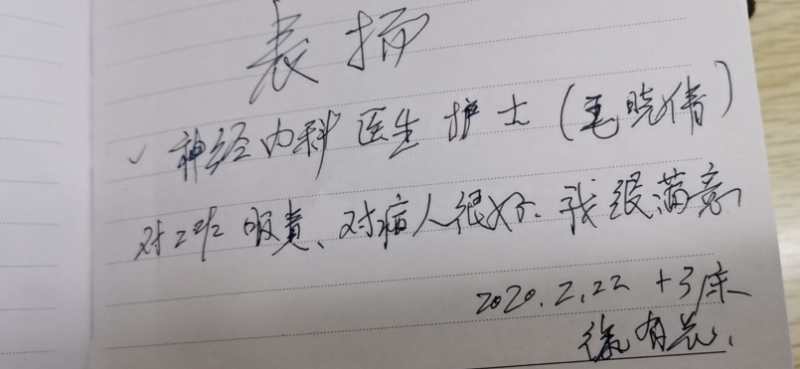 表扬
神经内科医生护士(毛晓倩)
对工作服责、对病人很好.我很满意
2020.2.22 +3床
徐有